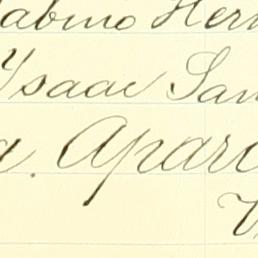 Sabino Her
Ysaac San
a. Apar
V